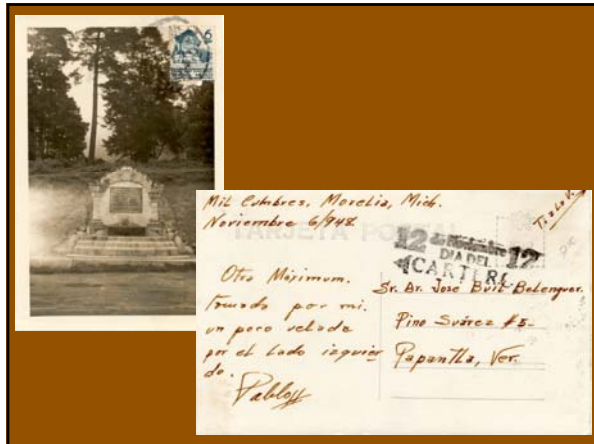 6
Mil Cumbres, Morelia, Mich.
Noviembre 6/948
TARJETA POSTAL
12 de Noviembre 12
DIA DEL
CARTERO
Otra Máximum.
tomada por mi.
un poco velada
por el lado izquier
do.
Pablo
Sr. Dr. José Buil Belenguer.
Pino Suárez #5-
Papantla, Ver.